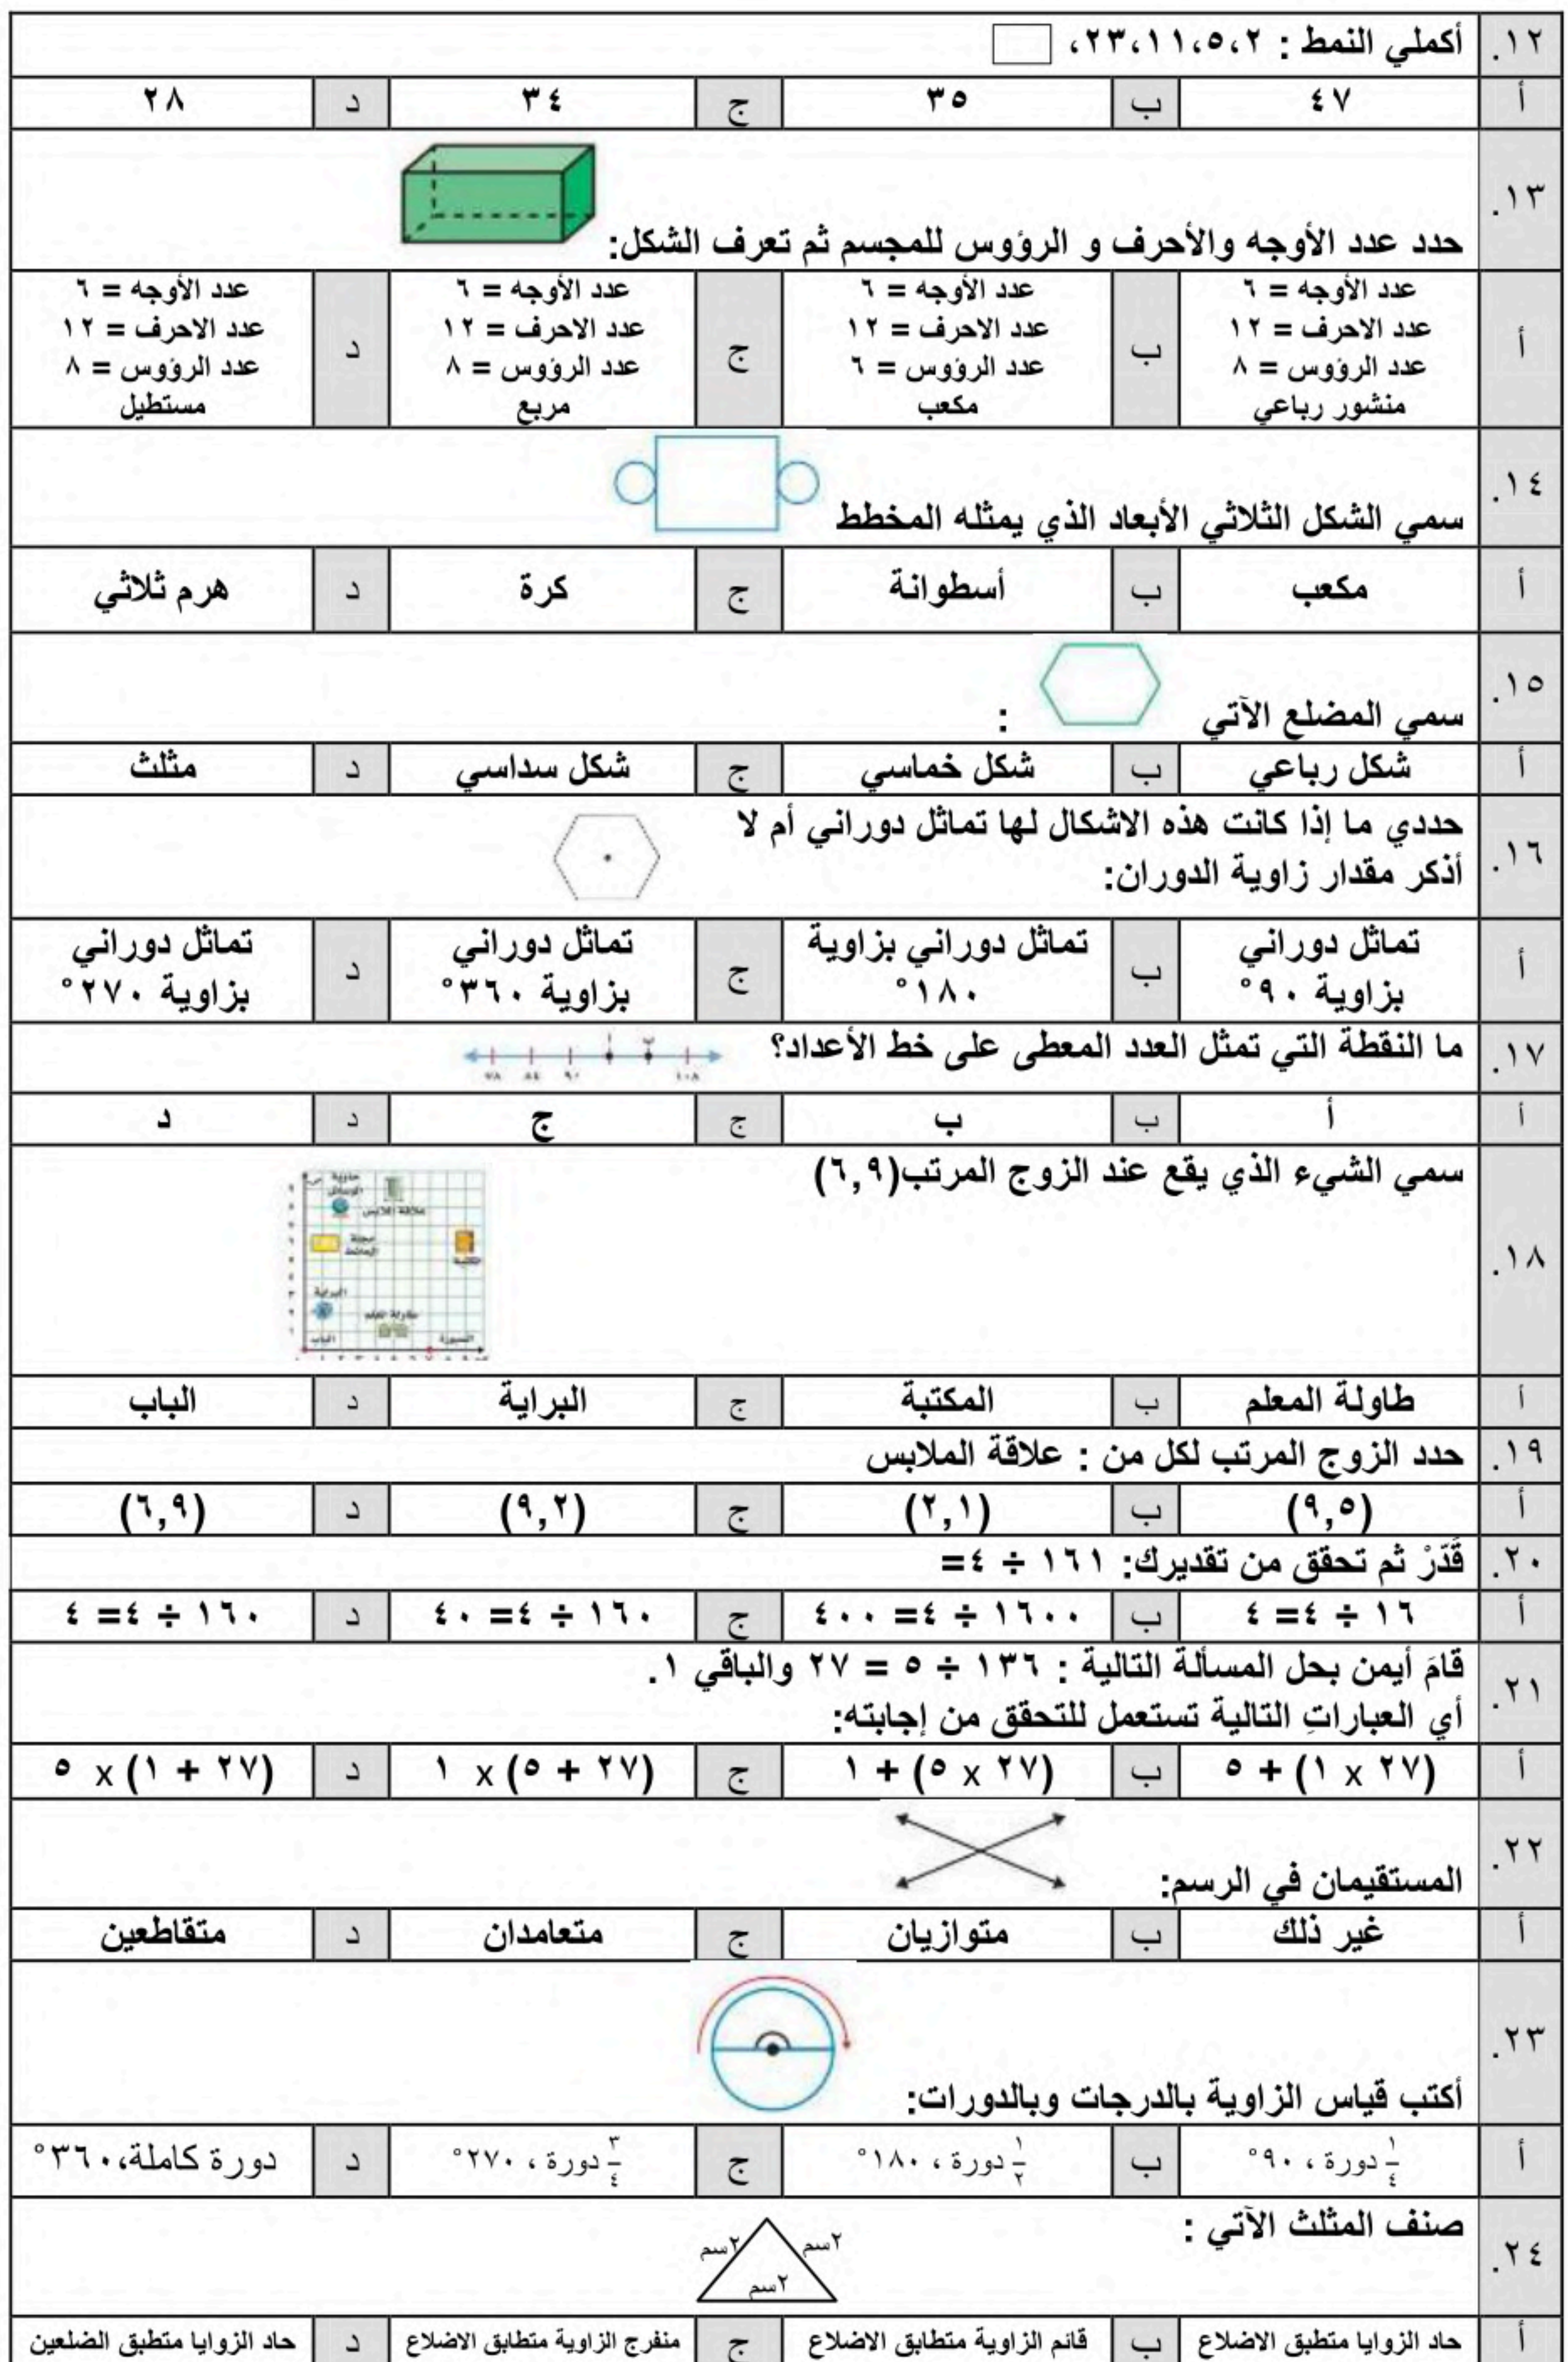 ١٢. أكملي النمط : ٢،٥،١١،٢٣،
أ ٤٧ ب ٣٥ ج ٣٤ د ٢٨
١٣.
حدد عدد الأوجه والأحرف و الرؤوس للمجسم ثم تعرف الشكل:
أ
عدد الأوجه = ٦
عدد الاحرف = ١٢
عدد الرؤوس = ٨
منشور رباعي
ب
عدد الأوجه = ٦
عدد الاحرف = ١٢
عدد الرؤوس = ٦
مكعب
ج
عدد الأوجه = ٦
عدد الاحرف = ١٢
عدد الرؤوس = ٨
مربع
د
عدد الأوجه = ٦
عدد الاحرف = ١٢
عدد الرؤوس = ٨
مستطيل
١٤.
سمي الشكل الثلاثي الأبعاد الذي يمثله المخطط
أ مكعب ب أسطوانة ج كرة د هرم ثلاثي
١٥.
سمي المضلع الآتي :
أ شكل رباعي ب شكل خماسي ج شكل سداسي د مثلث
١٦.
حددي ما إذا كانت هذه الاشكال لها تماثل دوراني أم لا
أذكر مقدار زاوية الدوران:
أ
تماثل دوراني
بزاوية ٩٠°
ب
تماثل دوراني بزاوية
١٨٠°
ج
تماثل دوراني
بزاوية ٣٦٠°
د
تماثل دوراني
بزاوية ٢٧٠°
١٧. ما النقطة التي تمثل العدد المعطى على خط الأعداد؟
٧٨ ٨٤ ٩٠ أ ب ١٠٨
أ أ ب ب ج ج د د
١٨.
سمي الشيء الذي يقع عند الزوج المرتب(٦,٩)
حاوية
الوسائل
علاقة الملابس
مجلة
الحائط
المكتبة
البراية
طاولة المعلم
الباب
السبورة
أ طاولة المعلم ب المكتبة ج البراية د الباب
١٩. حدد الزوج المرتب لكل من : علاقة الملابس
أ (٩,٥) ب (٢,١) ج (٩,٢) د (٦,٩)
٢٠. قَدّرْ ثم تحقق من تقديرك: ١٦١ ÷ ٤=
أ ١٦ ÷ ٤= ٤ ب ١٦٠٠ ÷ ٤= ٤٠٠ ج ١٦٠ ÷ ٤= ٤٠ د ١٦٠ ÷ ٤= ٤
٢١.
قامَ أيمن بحل المسألة التالية : ١٣٦ ÷ ٥ = ٢٧ والباقي ١.
أي العباراتِ التالية تستعمل للتحقق من إجابته:
أ (٢٧ x ١) + ٥ ب (٢٧ x ٥) + ١ ج (٢٧ + ٥) x ١ د (٢٧ + ١) x ٥
٢٢.
المستقيمان في الرسم:
أ غير ذلك ب متوازيان ج متعامدان د متقاطعين
٢٣.
أكتب قياس الزاوية بالدرجات وبالدورات:
أ ١/٤ دورة ، ٩٠° ب ١/٢ دورة ، ١٨٠° ج ٣/٤ دورة ، ٢٧٠° د دورة كاملة،٣٦٠°
٢٤.
صنف المثلث الآتي :
٢سم ٢سم
٢سم
أ حاد الزوايا متطبق الاضلاع ب قائم الزاوية متطابق الاضلاع ج منفرج الزاوية متطابق الاضلاع د حاد الزوايا متطبق الضلعين